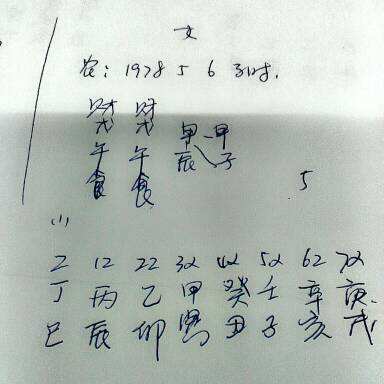 女
农: 1978 5 6 子时.
财 财
戊 戊 甲 甲
午 午 辰 子
食 食
5
(1)
2 12 22 32 42 52 62 72
丁 丙 乙 甲 癸 壬 辛 庚
巳 辰 卯 寅 丑 子 亥 戌